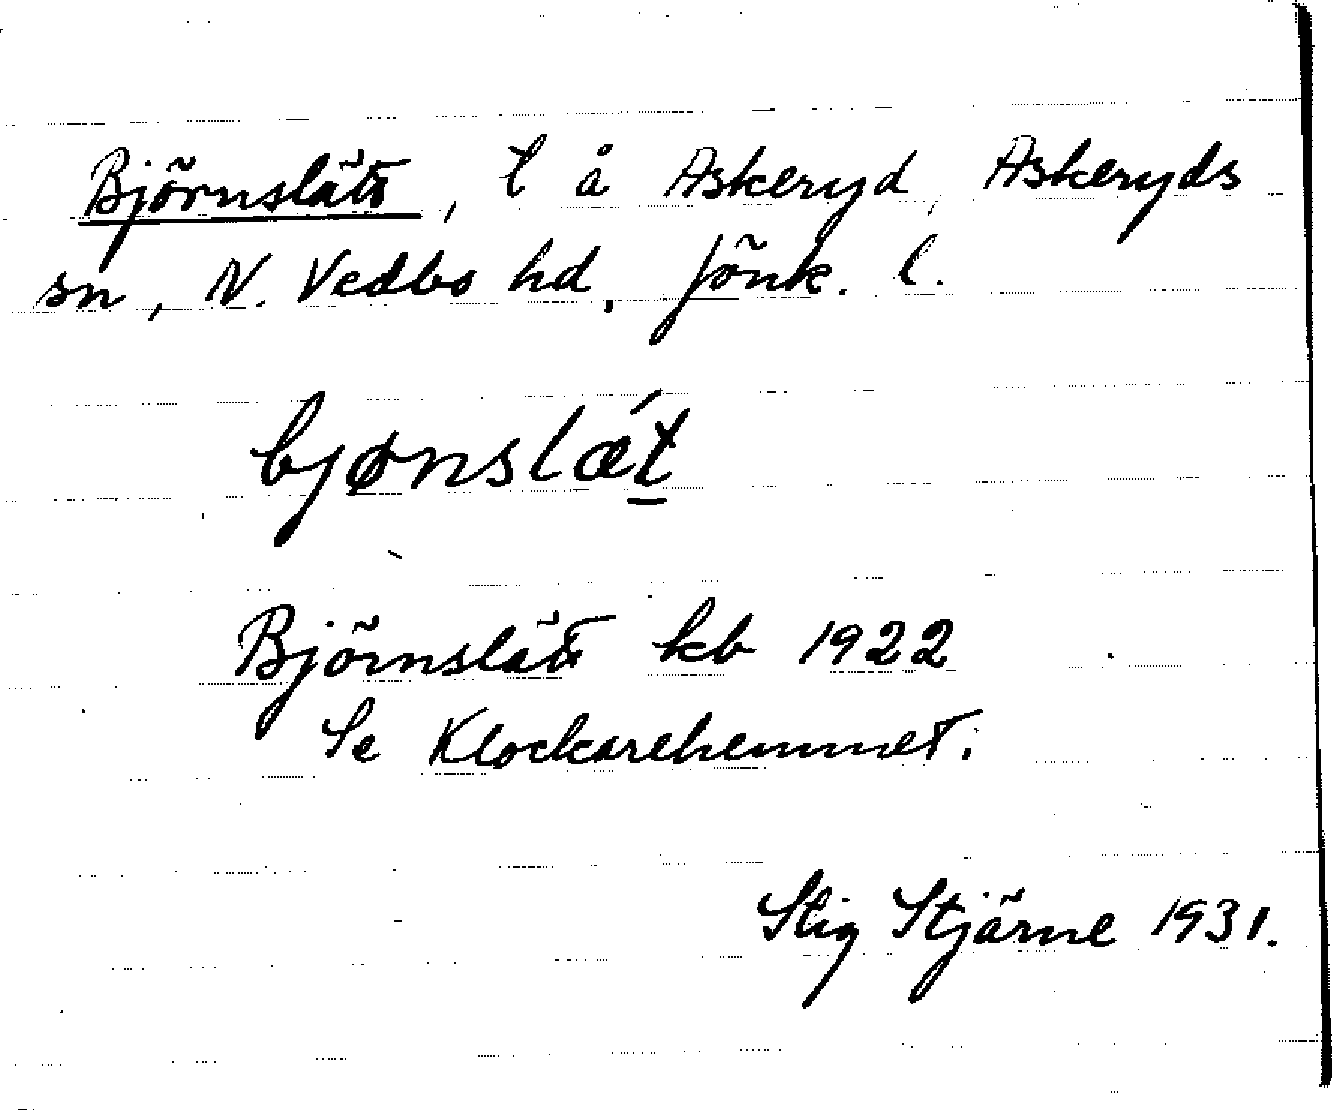 Björnslätt, l å Askeryd, Askeryds
sn, N. Vedbo hd, Jönk. l.
bjønslǽt̲
Björnslätt kb 1922
Se Klockarehemmet.
Stig Stjärne 1931.